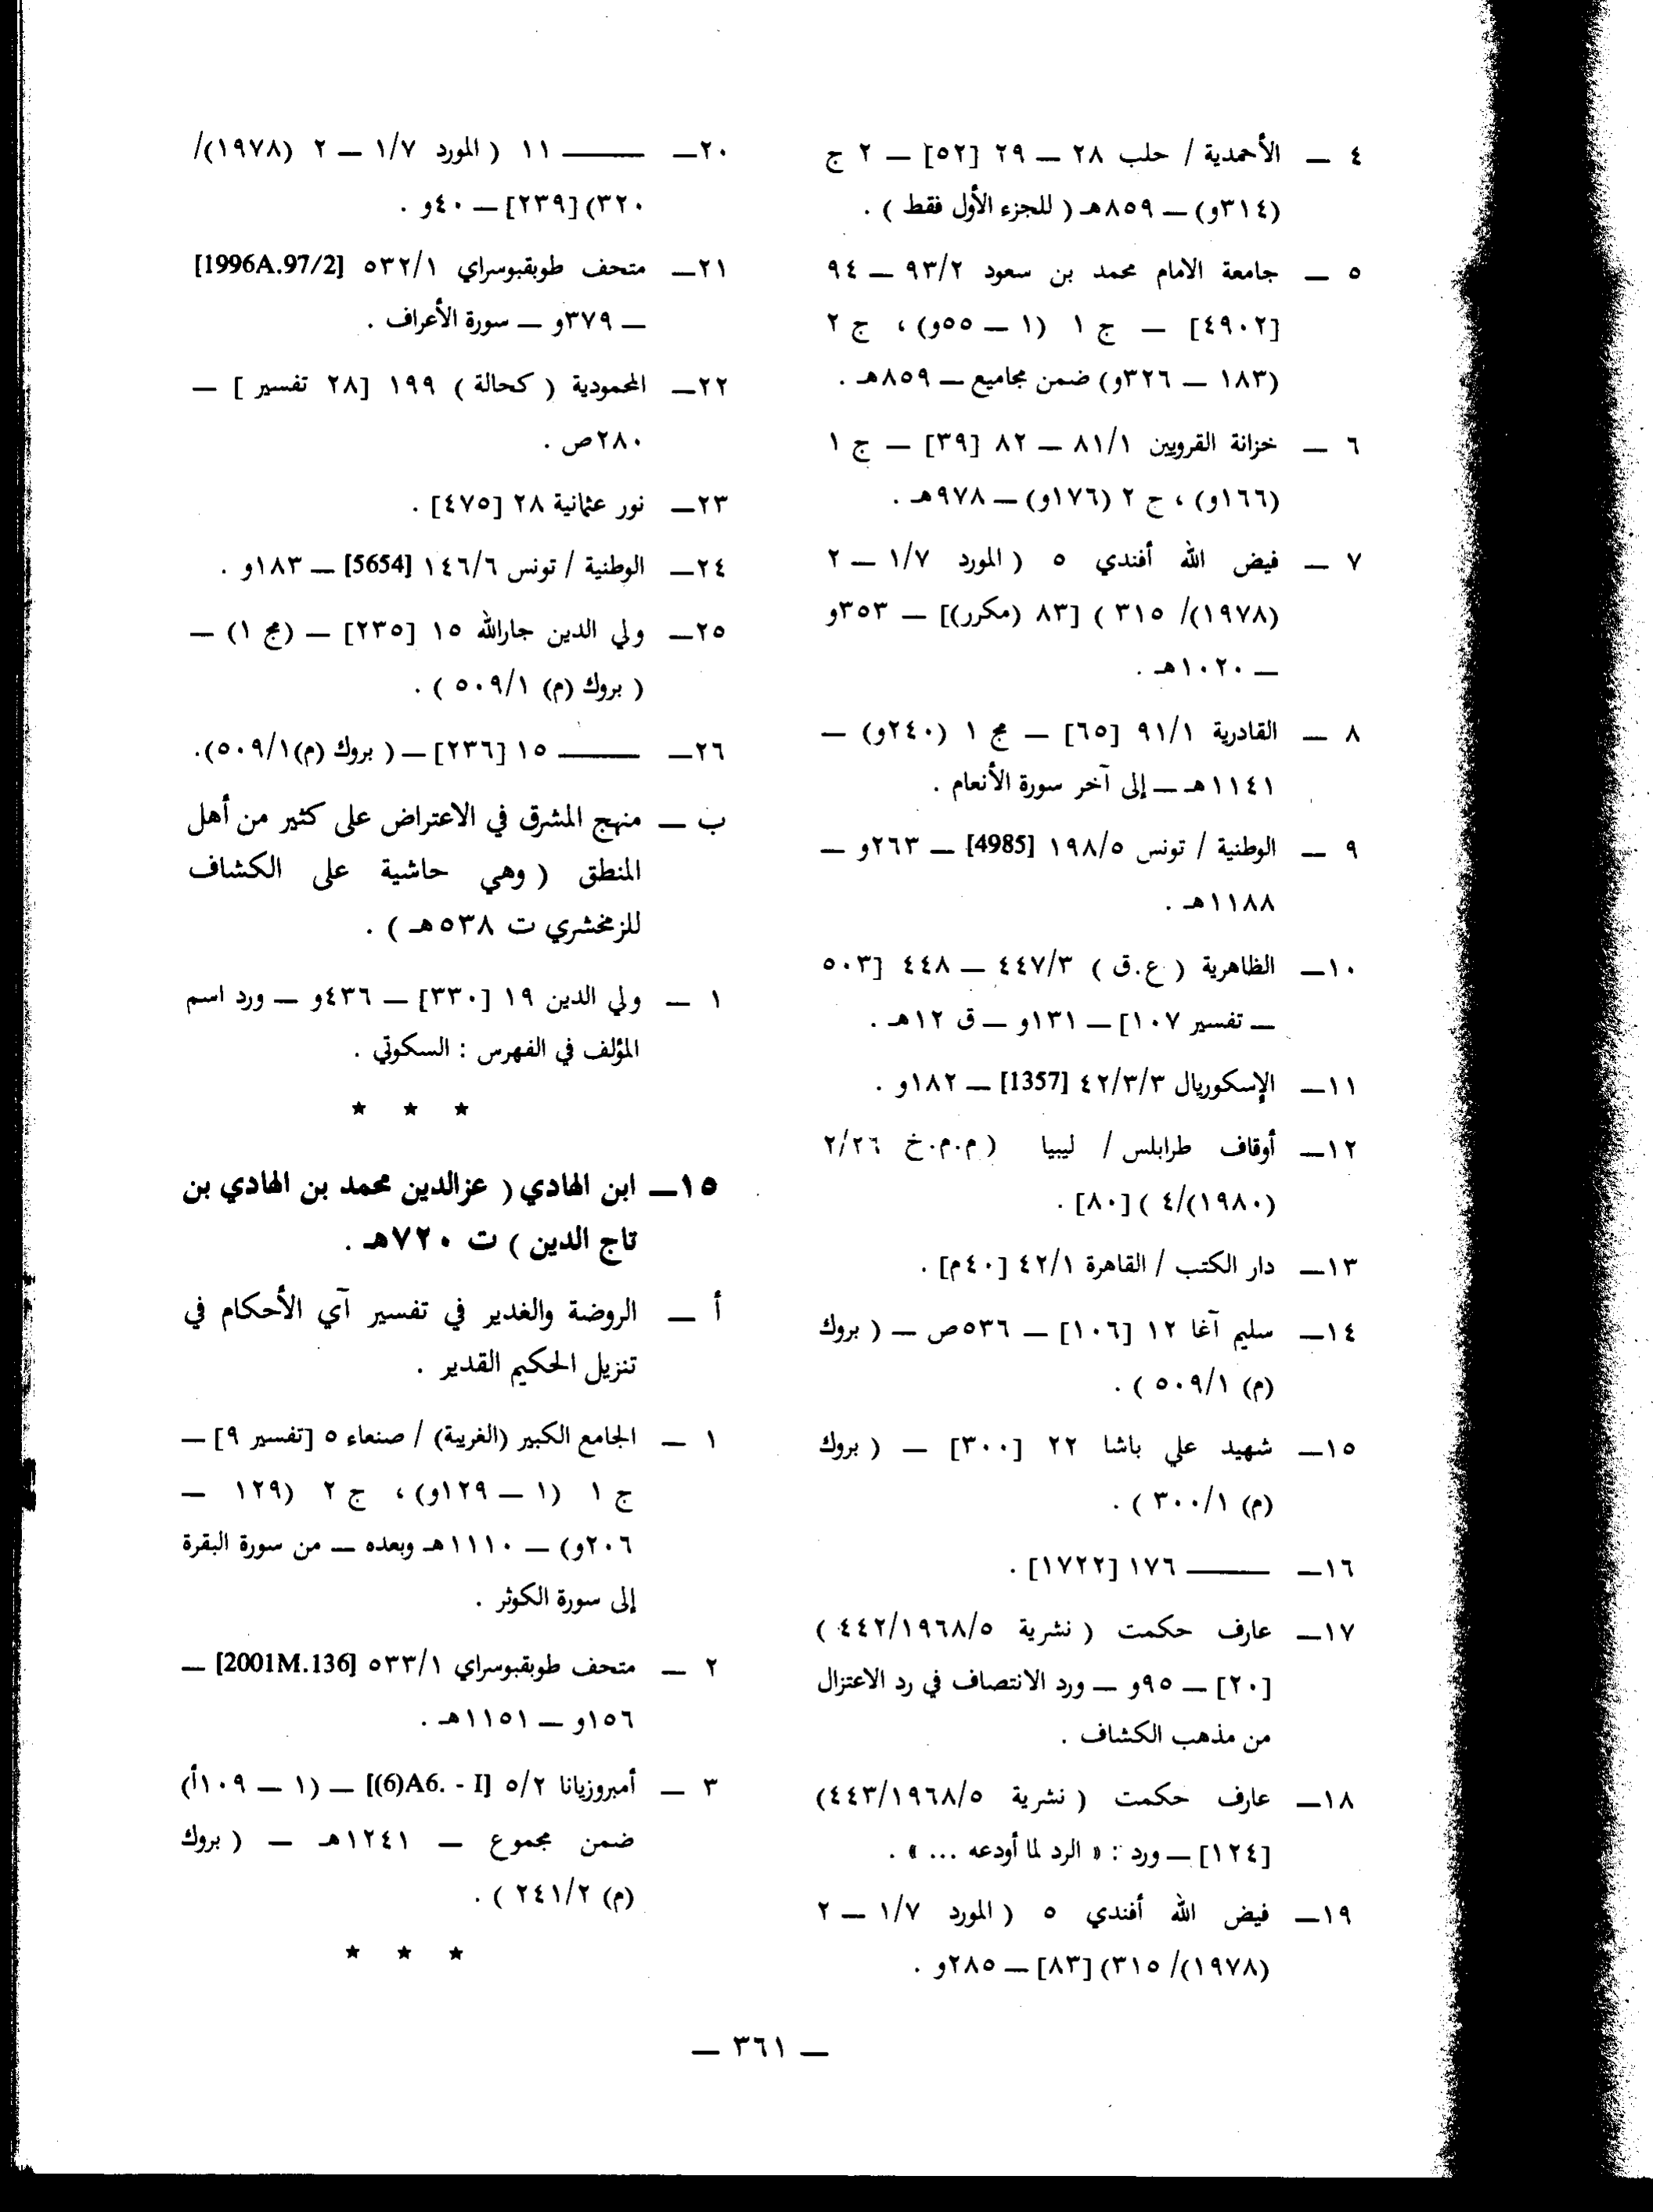 ٤ — الأحمدية / حلب ٢٨ — ٢٩ [٥٢] — ٢ ج
(٣١٤و) — ٨٥٩هـ ( للجزء الأول فقط ) .
٥ — جامعة الامام محمد بن سعود ٩٣/٢ — ٩٤
[٤٩٠٢] — ج ١ (١ — ٥٥و) ، ج ٢
(١٨٣ — ٣٢٦و) ضمن مجاميع — ٨٥٩هـ .
٦ — خزانة القرويين ٨١/١ — ٨٢ [٣٩] — ج ١
(١٦٦و) ، ج ٢ (١٧٦و) — ٩٧٨هـ .
٧ — فيض الله أفندي ٥ ( المورد ١/٧ — ٢
(١٩٧٨)/ ٣١٥ ) [٨٣ (مكرر)] — ٣٥٣و
— ١٠٢٠هـ .
٨ — القادرية ٩١/١ [٦٥] — مج ١ (٢٤٠و) —
١١٤١هـ — إلى آخر سورة الأنعام .
٩ — الوطنية / تونس ١٩٨/٥ [4985] — ٢٦٣و —
١١٨٨هـ .
١٠— الظاهرية ( ع.ق ) ٤٤٧/٣ — ٤٤٨ [٥٠٣
— تفسير ١٠٧] — ١٣١و — ق ١٢هـ .
١١— الإسكوريال ٤٢/٣/٣ [1357] — ١٨٢و .
١٢— أوقاف طرابلس / ليبيا ( م.م.خ ٢/٢٦
(١٩٨٠)/٤ ) [٨٠] .
١٣— دار الكتب / القاهرة ٤٢/١ [٤٠م] .
١٤— سليم آغا ١٢ [١٠٦] — ٥٣٦ص — ( بروك
(م) ٥٠٩/١ ) .
١٥— شهيد علي باشا ٢٢ [٣٠٠] — ( بروك
(م) ٣٠٠/١ ) .
١٦— ——— ١٧٦ [١٧٢٢] .
١٧— عارف حكمت ( نشرية ٤٤٢/١٩٦٨/٥ )
[٢٠] — ٩٥و — ورد الانتصاف في رد الاعتزال
من مذهب الكشاف .
١٨— عارف حكمت ( نشرية ٤٤٣/١٩٦٨/٥)
[١٢٤] — ورد : « الرد لما أودعه ... » .
١٩— فيض الله أفندي ٥ ( المورد ١/٧ — ٢
(١٩٧٨)/ ٣١٥) [٨٣] — ٢٨٥و .
٢٠— ——— ١١ ( المورد ١/٧ — ٢ (١٩٧٨)/
٣٢٠) [٢٣٩] — ٤٠و .
٢١— متحف طوبقبوسراي ٥٣٢/١ [1996A.97/2]
— ٣٧٩و — سورة الأعراف .
٢٢— المحمودية ( كحالة ) ١٩٩ [٢٨ تفسير ] —
٢٨٠ص .
٢٣— نور عثمانية ٢٨ [٤٧٥] .
٢٤— الوطنية / تونس ١٤٦/٦ [5654] — ١٨٣و .
٢٥— ولي الدين جارالله ١٥ [٢٣٥] — (مج ١) —
( بروك (م) ٥٠٩/١ ) .
٢٦— ——— ١٥ [٢٣٦] — ( بروك (م)٥٠٩/١).
ب — منهج المشرق في الاعتراض على كثير من أهل
المنطق ( وهي حاشية على الكشاف
للزمخشري ت ٥٣٨هـ ) .
١ — ولي الدين ١٩ [٣٣٠] — ٤٣٦و — ورد اسم
المؤلف في الفهرس : السكوتي .
★ ★ ★
١٥— ابن الهادي ( عزالدين محمد بن الهادي بن
تاج الدين ) ت ٧٢٠هـ .
أ — الروضة والغدير في تفسير آي الأحكام في
تنزيل الحكيم القدير .
١ — الجامع الكبير (الغربية) / صنعاء ٥ [تفسير ٩] —
ج ١ (١ — ١٢٩و) ، ج ٢ (١٢٩ —
٢٠٦و) — ١١١٠هـ وبعده — من سورة البقرة
إلى سورة الكوثر .
٢ — متحف طوبقبوسراي ٥٣٣/١ [2001M.136] —
١٥٦و — ١١٥١هـ .
٣ — أمبروزيانا ٥/٢ [(6)A6. - I)] — (١ — ١٠٩أ)
ضمن مجموع — ١٢٤١هـ — ( بروك
(م) ٢٤١/٢ ) .
★ ★ ★
— ٣٦١ —